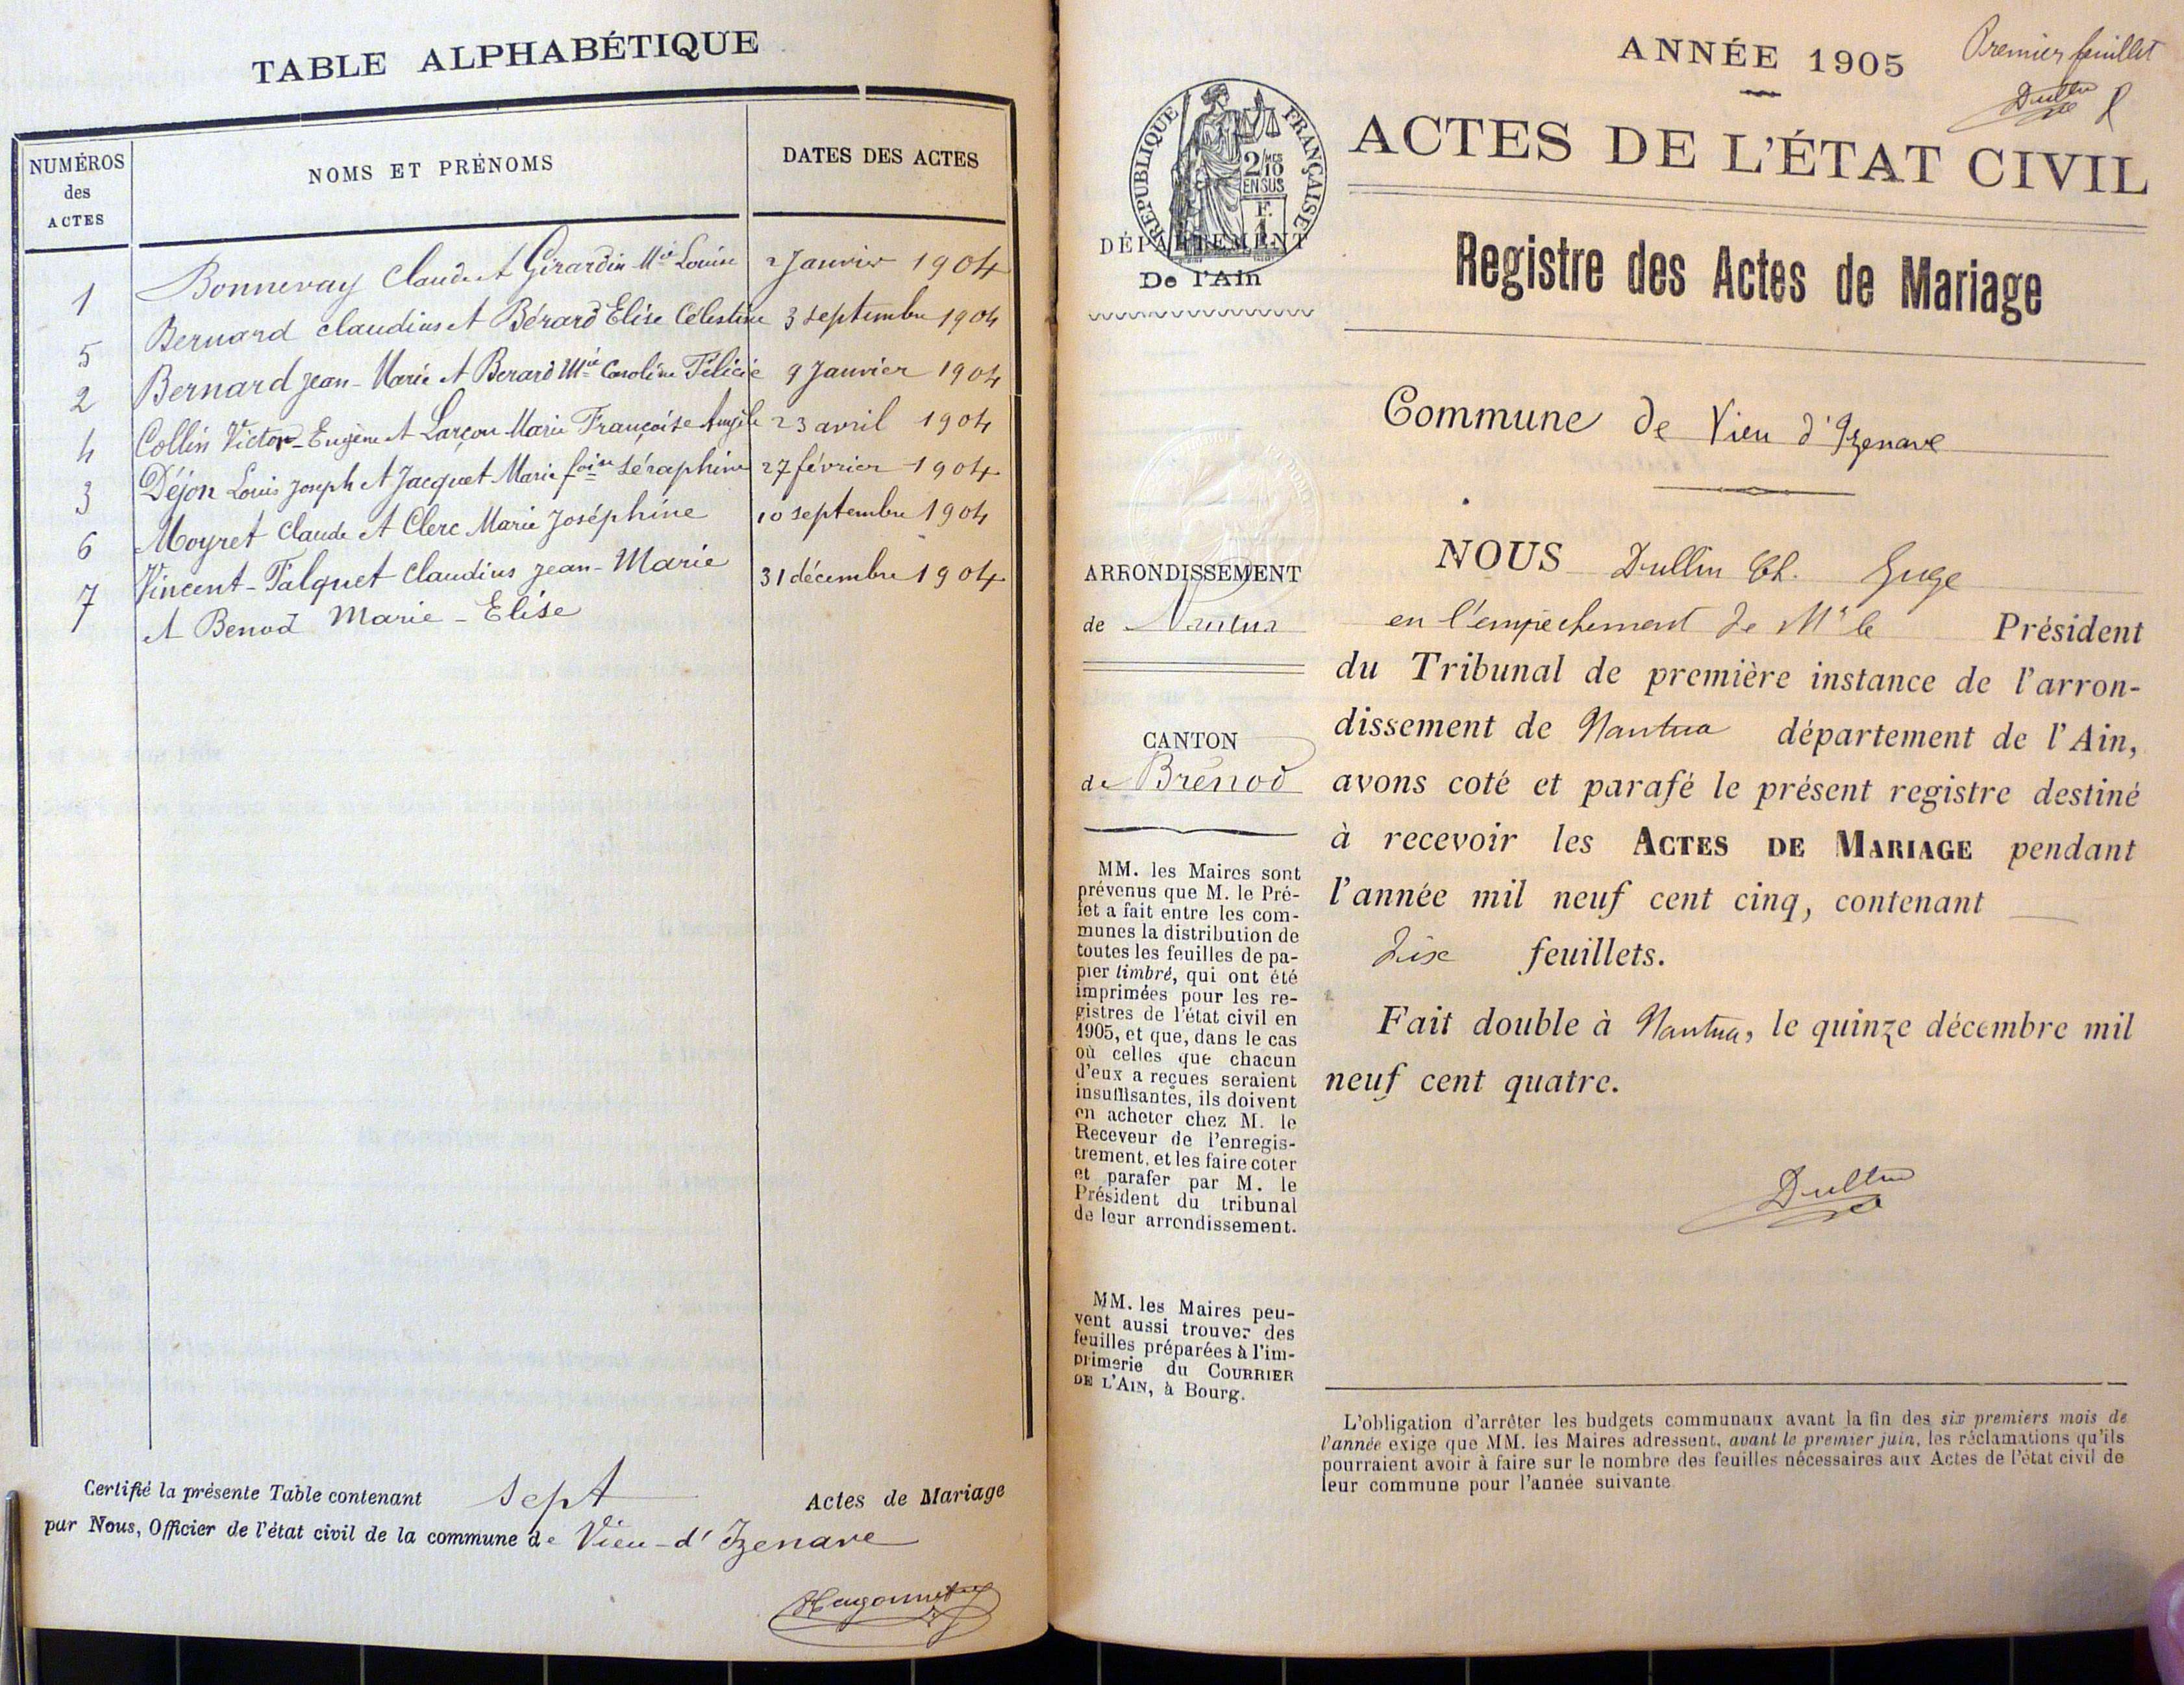 TABLE ALPHABÉTIQUE
NUMÉROS
des
ACTES
NOMS ET PRÉNOMS
DATES DES ACTES
1 Bonnevay Claude et Girardin Mie Louise 2 Janvier 1904
5 Bernard Claudius et Bérard Elise Célestine 3 septembre 1904
2 Bernard Jean-Marie et Berard Mie Caroline Félicie 9 Janvier 1904
4 Collin Victor-Eugène et Larçon Marie Françoise Angèle 23 avril 1904
3 Déjon Louis Joseph et Jacquet Marie foise Séraphine 27 février 1904
6 Moyret Claude et Clerc Marie Joséphine 10 septembre 1904
7 Vincent-Falquet Claudius Jean-Marie 31 décembre 1904
et Benod Marie-Elise
Certifié la présente Table contenant sept Actes de Mariage
par Nous, Officier de l'état civil de la commune de Vieu-d'Izenave
Hugonnet
Premier feuillet
Dullin
ANNÉE 1905
ACTES DE L'ÉTAT CIVIL
RÉPUBLIQUE FRANÇAISE
2/10 MES
EN SUS
1 F.
DÉPARTEMENT
De l'Ain
Registre des Actes de Mariage
Commune de Vieu d'Izenave
ARRONDISSEMENT
de Nantua
CANTON
de Brénod
MM. les Maires sont
prévenus que M. le Pré-
fet a fait entre les com-
munes la distribution de
toutes les feuilles de pa-
pier timbré, qui ont été
imprimées pour les re-
gistres de l'état civil en
1905, et que, dans le cas
où celles que chacun
d'eux a reçues seraient
insuffisantes, ils doivent
en acheter chez M. le
Receveur de l'enregis-
trement, et les faire coter
et parafer par M. le
Président du tribunal
de leur arrondissement.
MM. les Maires peu-
vent aussi trouver des
feuilles préparées à l'im-
primerie du COURRIER
DE L'AIN, à Bourg.
NOUS Dullin Ch. Juge
en l'empêchement de Mr le Président
du Tribunal de première instance de l'arron-
dissement de Nantua département de l'Ain,
avons coté et parafé le présent registre destiné
à recevoir les ACTES DE MARIAGE pendant
l'année mil neuf cent cinq, contenant
dix feuillets.
Fait double à Nantua, le quinze décembre mil
neuf cent quatre.
Dullin
L'obligation d'arrêter les budgets communaux avant la fin des six premiers mois de
l'année exige que MM. les Maires adressent, avant le premier juin, les réclamations qu'ils
pourraient avoir à faire sur le nombre des feuilles nécessaires aux Actes de l'état civil de
leur commune pour l'année suivante